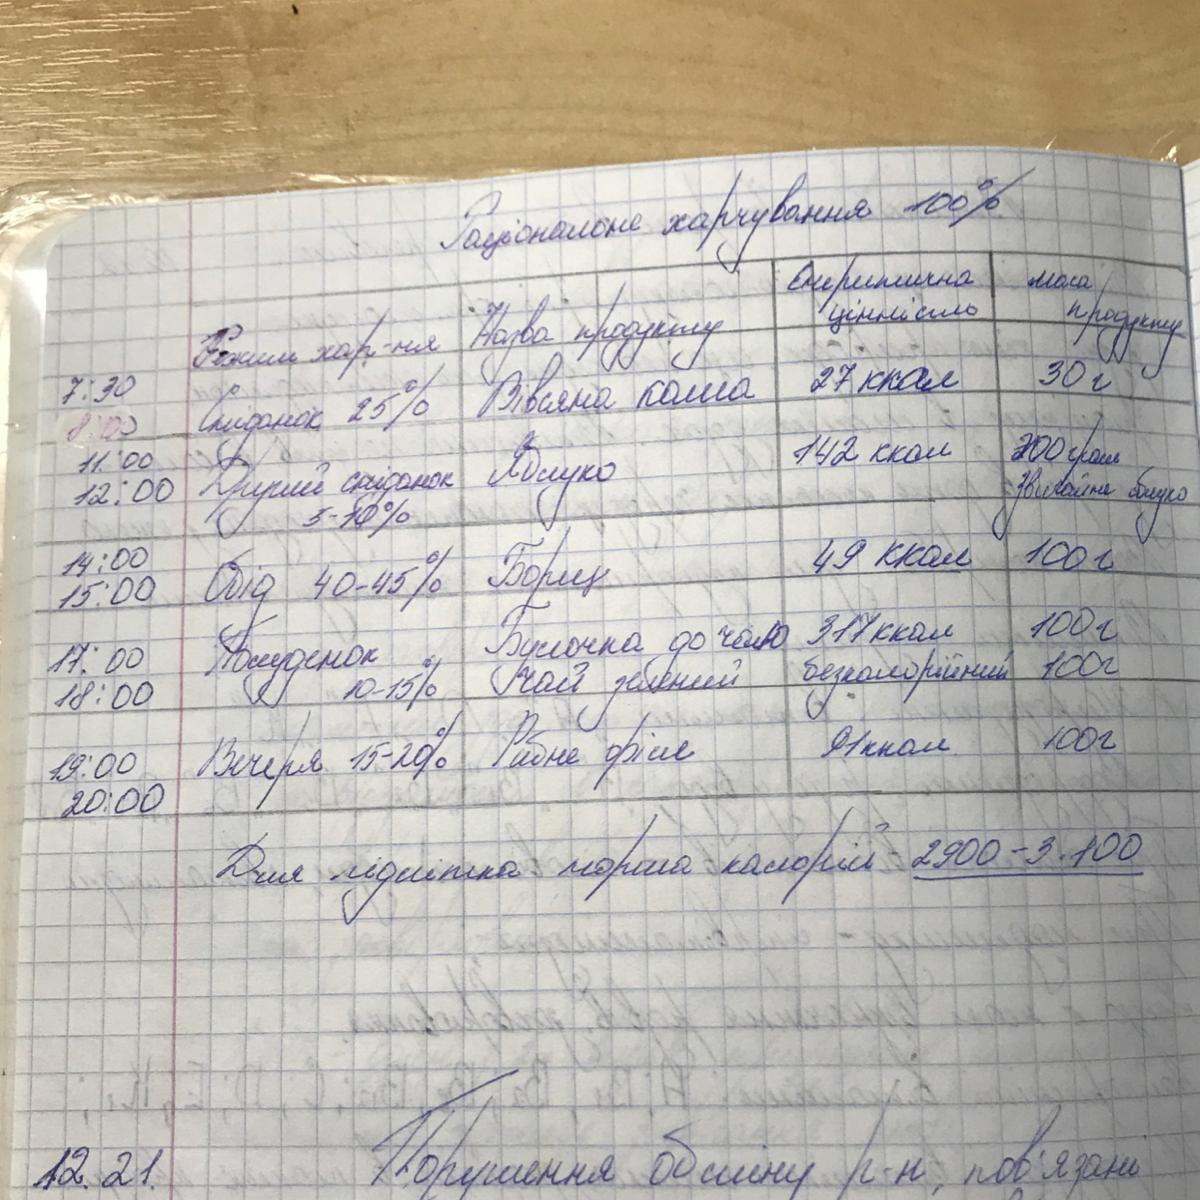 Раціональне харчування 100%
Режим хар-ня Назва продукту Енергетична цінність маса продукту
7:30
8:00 Сніданок 25% Вівсяна каша 27 ккал 30 г
11:00
12:00 Другий сніданок Яблуко 142 ккал 200 грам
5-10% звичайне яблуко
14:00
15:00 Обід 40-45% Борщ 49 ккал 100 г
17:00 Полуденок Булочка до чаю 317 ккал 100 г
18:00 10-15% Чай зелений безкалорійний 100 г
19:00 Вечеря 15-20% Рибне філе 91 ккал 100 г
20:00
Для підлітка норма калорій 2900-3.100
12.21. Порушення обміну р-н, пов'язані